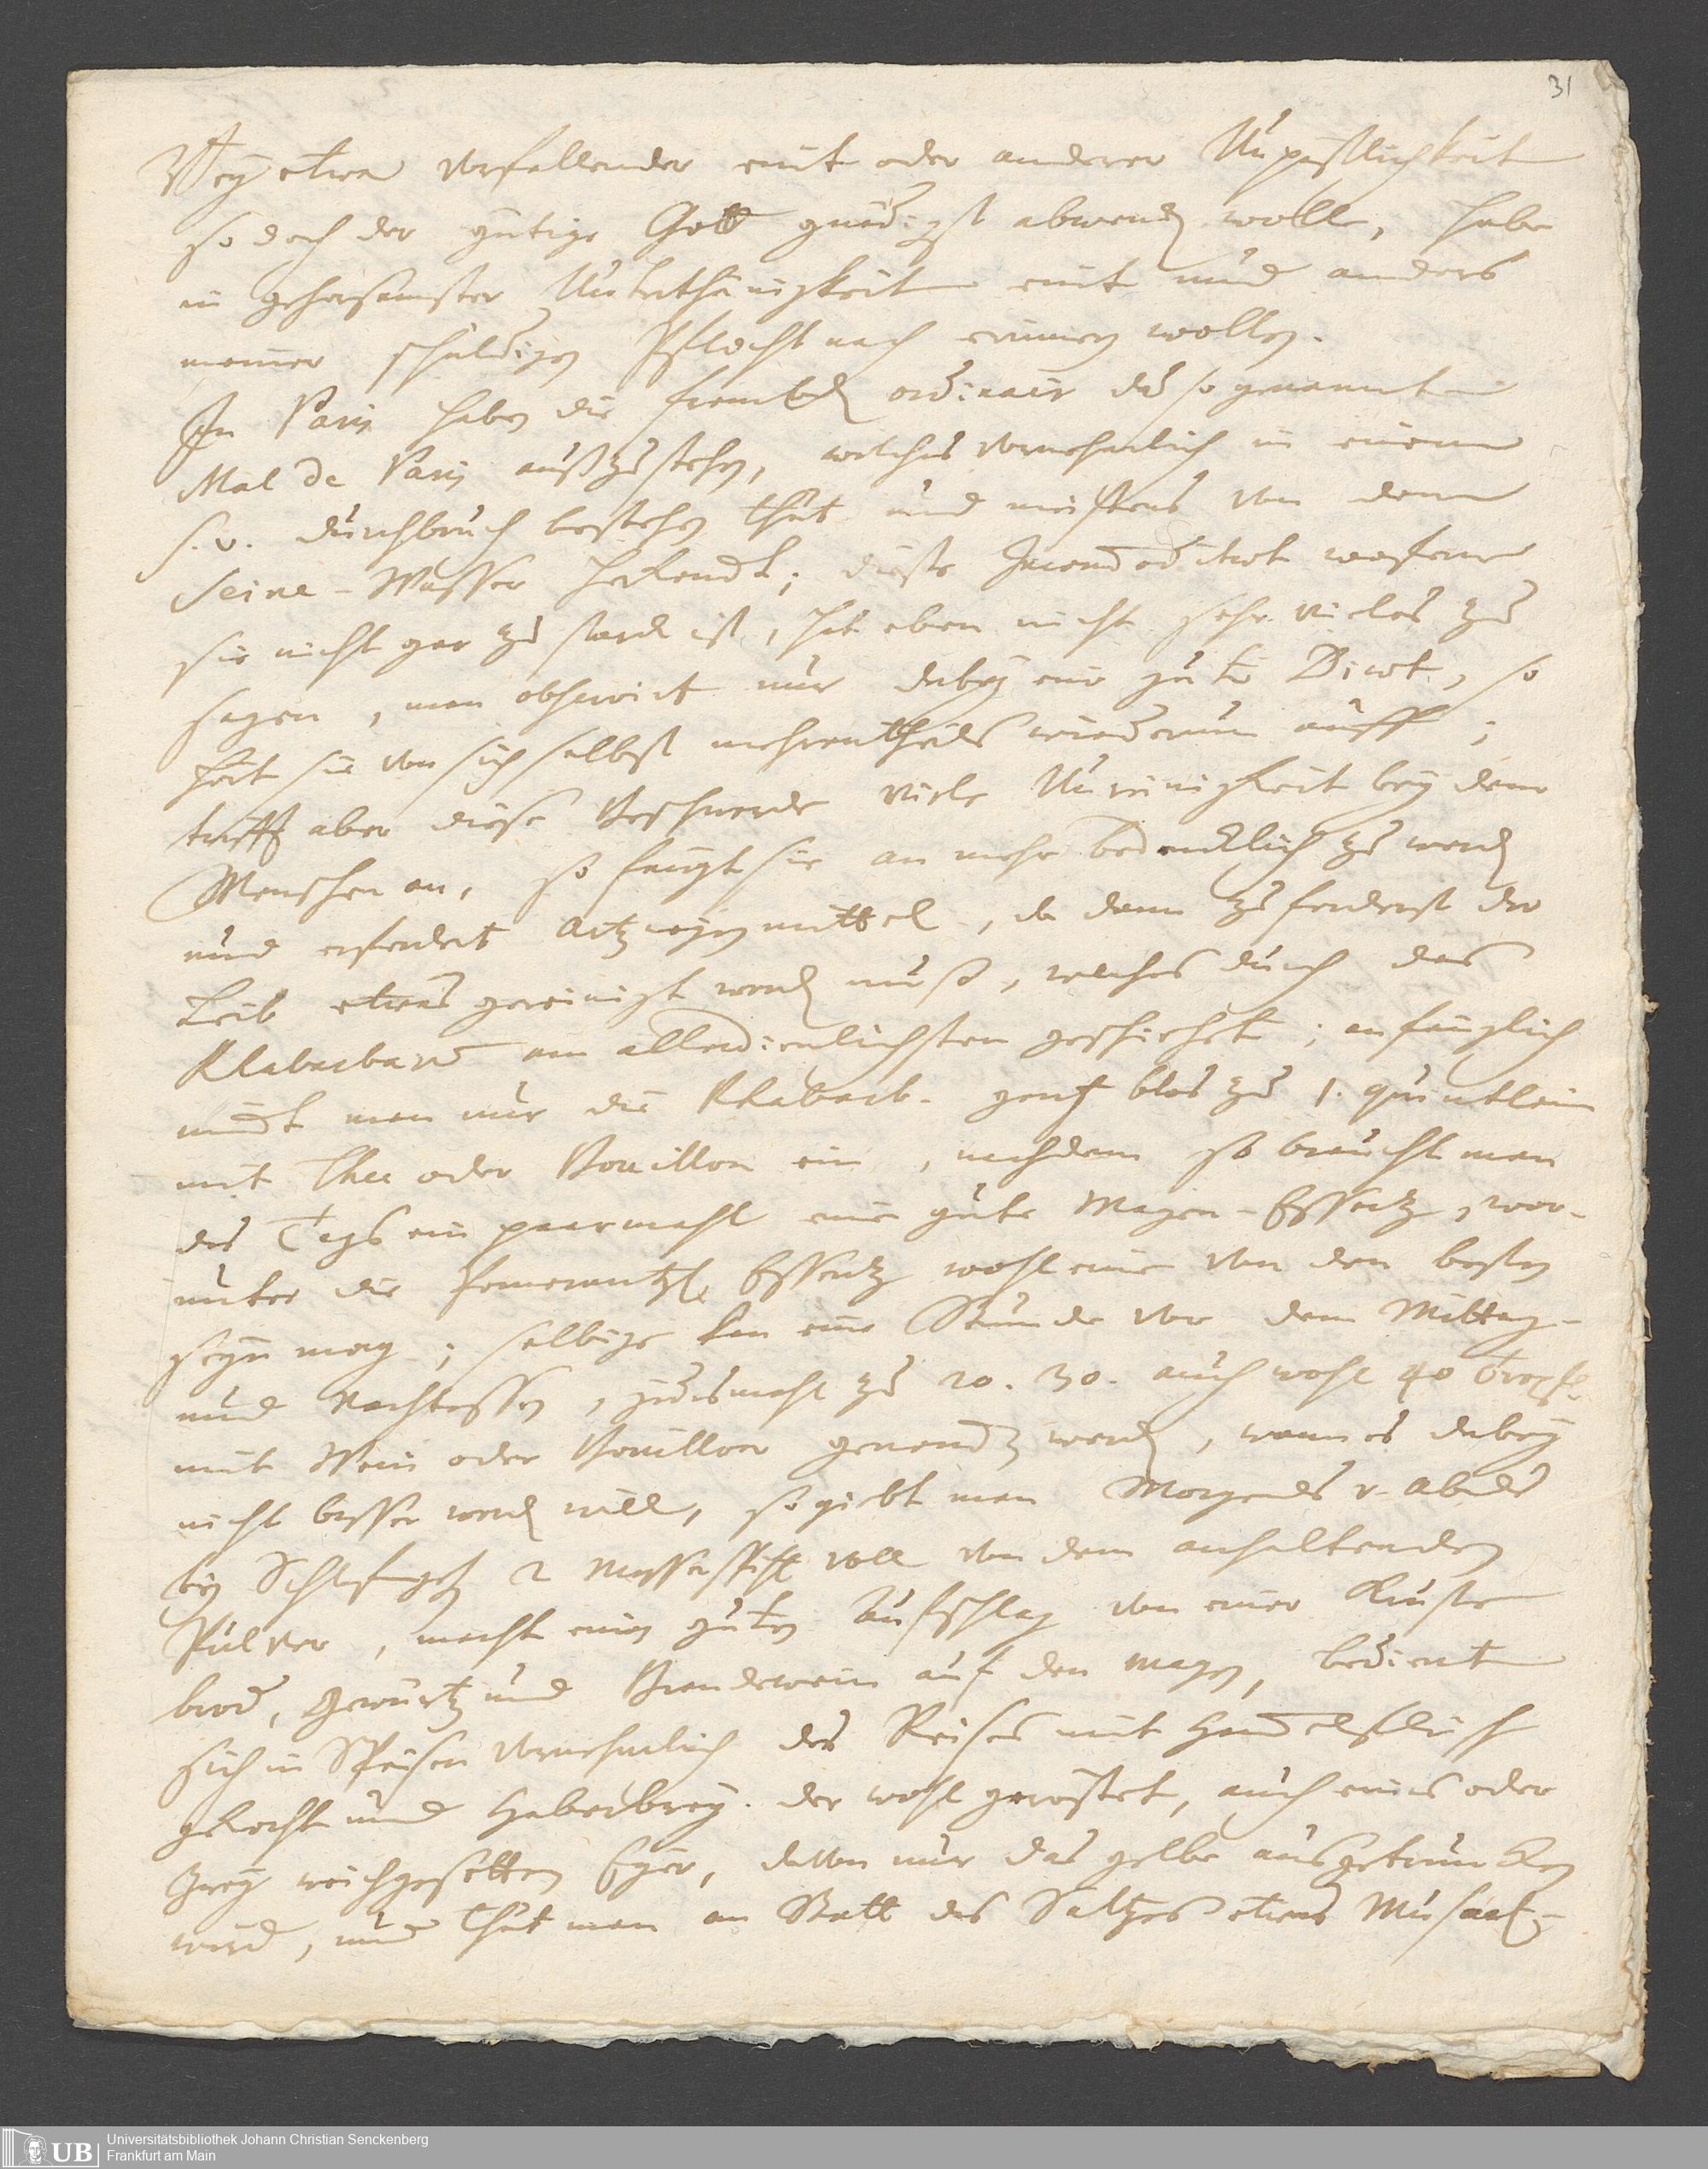 31
Bey etwa vorfallender einer oder anderer Unpäßlichkeit
so doch der gütige Gott gnädigst abwenden wolle, habe
in gehorsamster Unterthänigkeit eint und anders
meiner schuldigen Pflicht nach erinnern wollen.
In Paris haben die frembden ordinair das so genannte
Mal de Paris außzustehen, welches vornehmlich in einem
s. v. durchbruch bestehen thut und meistens von dem
Seine-Wasser herkomdt; dieße Incommoditaet wofern
sie nicht gar zu starck ist, hat eben nicht sehr vieles zu
sagen, man observirt nur dabey eine gute Diaet, so
hört sie von sich selbst mehrentheils wiederum auff;
trifft aber diese Beschwerde viele Unreinigkeit bey dem
Menschen an, so fängt sie an mehr bedencklich zu werden
und erfordert Artzneymittel, da dann zuforderst der
Leib etwas gereinigt werden muß, welches durch das
Rhabarbara am allerdienlichsten geschiehet; anfänglich
nimdt man nur die Rhabarb. gantz blos zu 1. quintlein
mit Thee oder Bouillon ein, nachdem so braucht man
des Tags ein paarmahl eine gute Magen-Essentz, wor-
unter die Pomerantzen Essentz wohl eine von den besten
seyn mag; selbige kan eine Stunde vor dem Mittag-
und Nachtessen, jedesmahl zu 20. 30. auch wohl 40 tropfen
mit Wein oder Bouillon genommen werden, wann es dabey
nicht besser werden will, so giebt man Morgends u. Abends
bey Schlafengehen 2 Messerspitz voll von dem anhaltenden
Pulver, macht einen guten Aufschlag von einer Kruste
brod, Gewürtz und Brandewein auf den Magen, bedient
sich in Speisen vornehmlich des Reises mit Hammelfleisch
gekocht und Haberbrey der wohl geröstet, auch eines oder
zwey weichgesotten Eyer, davon nur das gelbe ausgetruncken
wird, und thut man an Statt des Saltzes etwas Muscat-
UB
Universitätsbibliothek Johann Christian Senckenberg
Frankfurt am Main